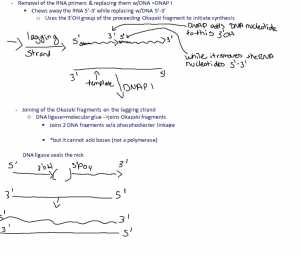 - Removal of the RNA primers & replacing them w/DNA =DNAP I
• Chews away the RNA 5'-3' while replacing w/DNA 5'-3'
o Uses the 3'OH group of the preceding Okazaki fragment to initiate synthesis
DNAP adds DNA nucleotide
to this 3'OH
lagging
strand
5'
3' 5'
3'
while it removes the RNA
nucleotides 5'-3'
3'
template
5'
DNAP I
- Joining of the Okazaki fragments on the lagging strand
o DNA ligase=molecular glue --joins Okazaki fragments
• Joins 2 DNA fragments w/a phosphodiester linkage
• *but it cannot add bases (not a polymerase)
DNA ligase seals the nick
5' 3'OH 5'PO4 3'
3' 5'
5' 3'
3' 5'